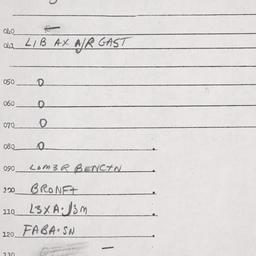 040
042 LIB AX A/R GAST
050 0
060 0
070 0
080 0
090 LOM3R BENCTN
100 BRONFT
110 L3XA·J3M
120 FABA·SN
130